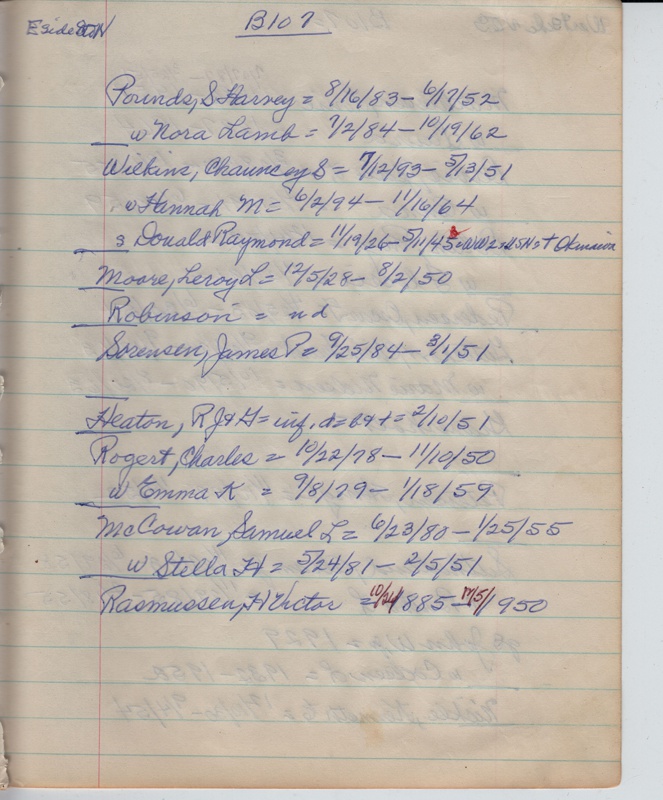 E side S to N
B107
Pounds, S Harvey = 8/16/83 - 6/17/52
w Nora Lamb = 7/2/84 - 10/19/62
Wilkins, Chauncey S = 7/12/93 - 5/13/51
w Hannah M = 6/2/94 - 11/16/64
s Donald Raymond = 11/19/26 - 5/11/45 = WW2 = USN = † Okinawa
Moore, Leroy L = 12/5/28 - 8/2/50
Robinson = nd
Sorensen, James P = 9/25/84 - 3/1/51
Heaton, R J & H = inf, d = b & t = 2/10/51
Rogert, Charles = 10/22/78 - 11/10/50
w Emma K = 9/8/79 - 1/18/59
McCowan, Samuel L = 6/23/80 - 1/25/55
w Stella H = 5/24/81 - 2/5/51
Rasmussen, H Victor = 10/24/1885 - /5/1950